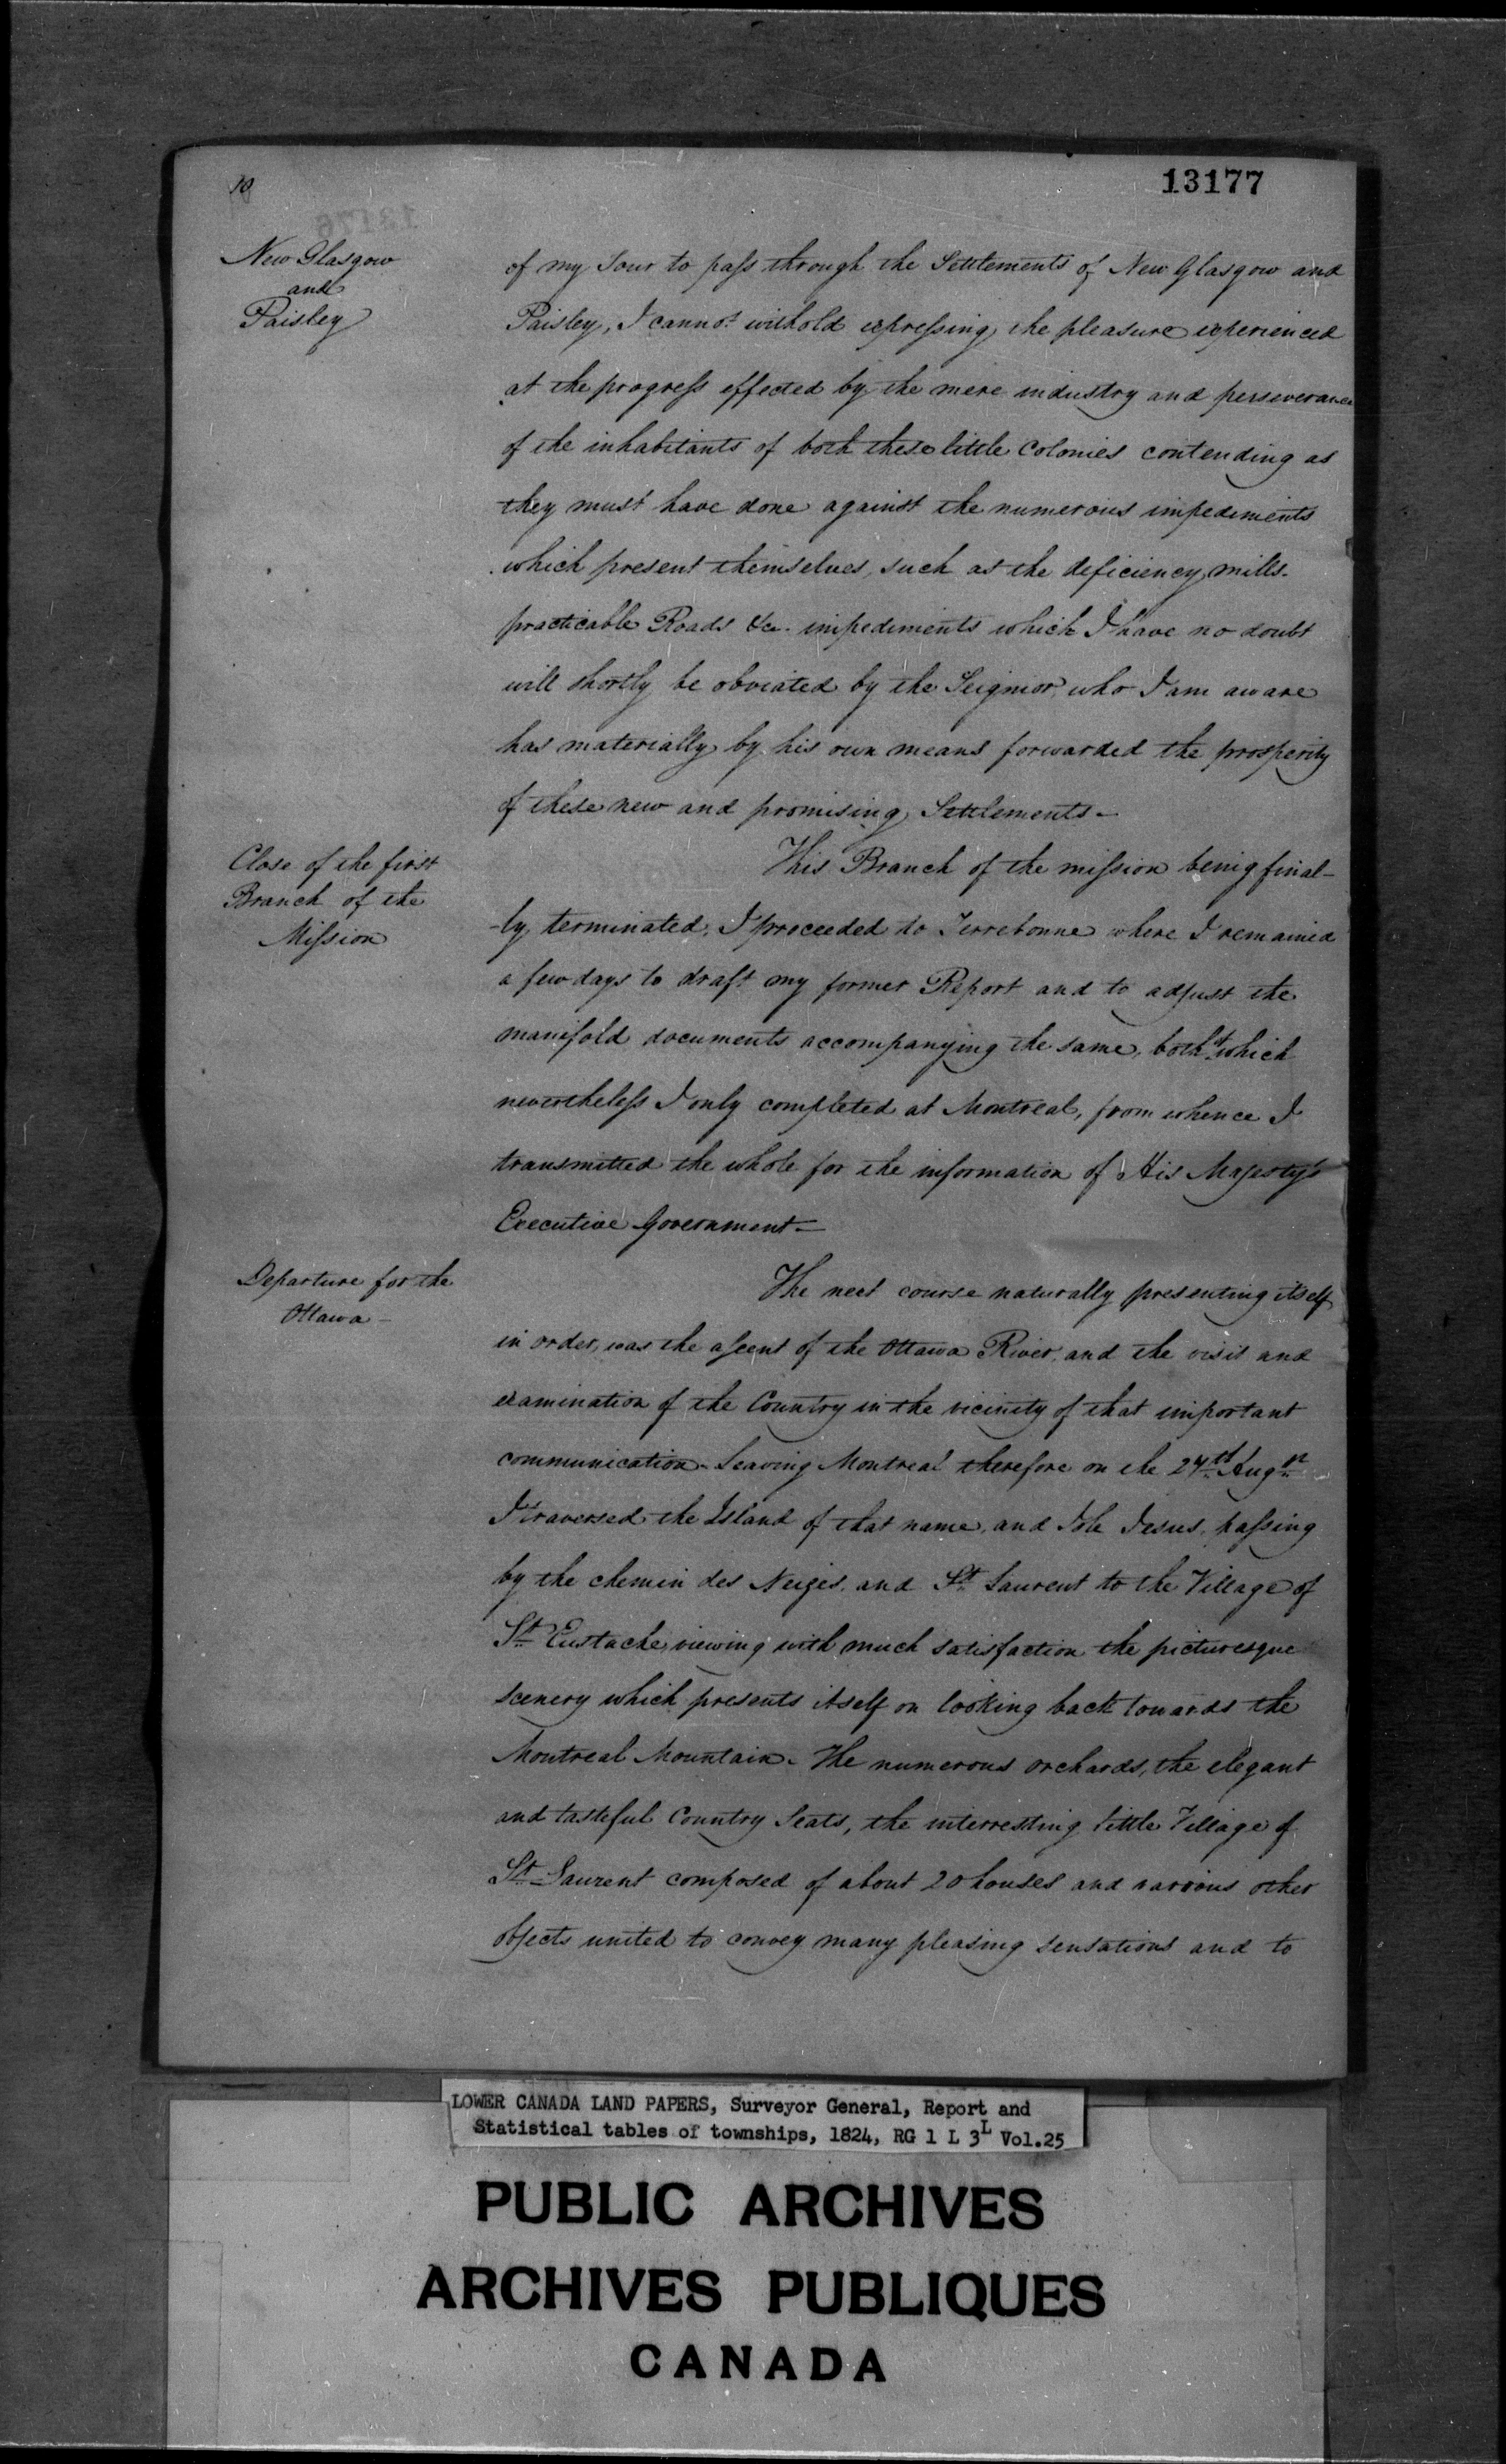 10
13177
New Glasgow
and
Paisley
of my Tour to pass through the Settlements of New Glasgow and
Paisley, I cannot withold expressing the pleasure experienced
at the progress effected by the mere industry and perseverance
of the inhabitants of both these little Colonies contending as
they must have done against the numerous impediments
which present themselves, such as the deficiency mills.
practicable Roads &c. impediments which I have no doubt
will shortly be obviated by the Seignior, who I am aware
has materially by his own means forwarded the prosperity
of these new and promising Settlements—
Close of the first
Branch of the
Mission
This Branch of the mission being final-
-ly terminated, I proceeded to Terrebonne where I remained
a few days to draft my former Report and to adjust the
manifold documents accompanying the same, both which
nevertheless I only completed at Montreal, from whence I
transmitted the whole for the information of His Majesty's
Executive Government—
Departure for the
Ottawa—
The next course naturally presenting itself
in order, was the ascent of the Ottawa River, and the visit and
examination of the Country in the vicinity of that important
communication— Leaving Montreal therefore on the 24th Augst
I traversed the Island of that name, and Isle Jesus, passing
by the chemin des Neiges, and St Laurent to the Village of
St Eustache, viewing with much satisfaction the picturesque
scenery which presents itself on looking back towards the
Montreal Mountain— The numerous orchards, the elegant
and tasteful Country Seats, the interresting little Village of
St Laurent composed of about 20 houses and various other
objects united to convey many pleasing sensations and to
LOWER CANADA LAND PAPERS, Surveyor General, Report and
Statistical tables of townships, 1824, RG 1 L 3L Vol.25
PUBLIC ARCHIVES
ARCHIVES PUBLIQUES
CANADA